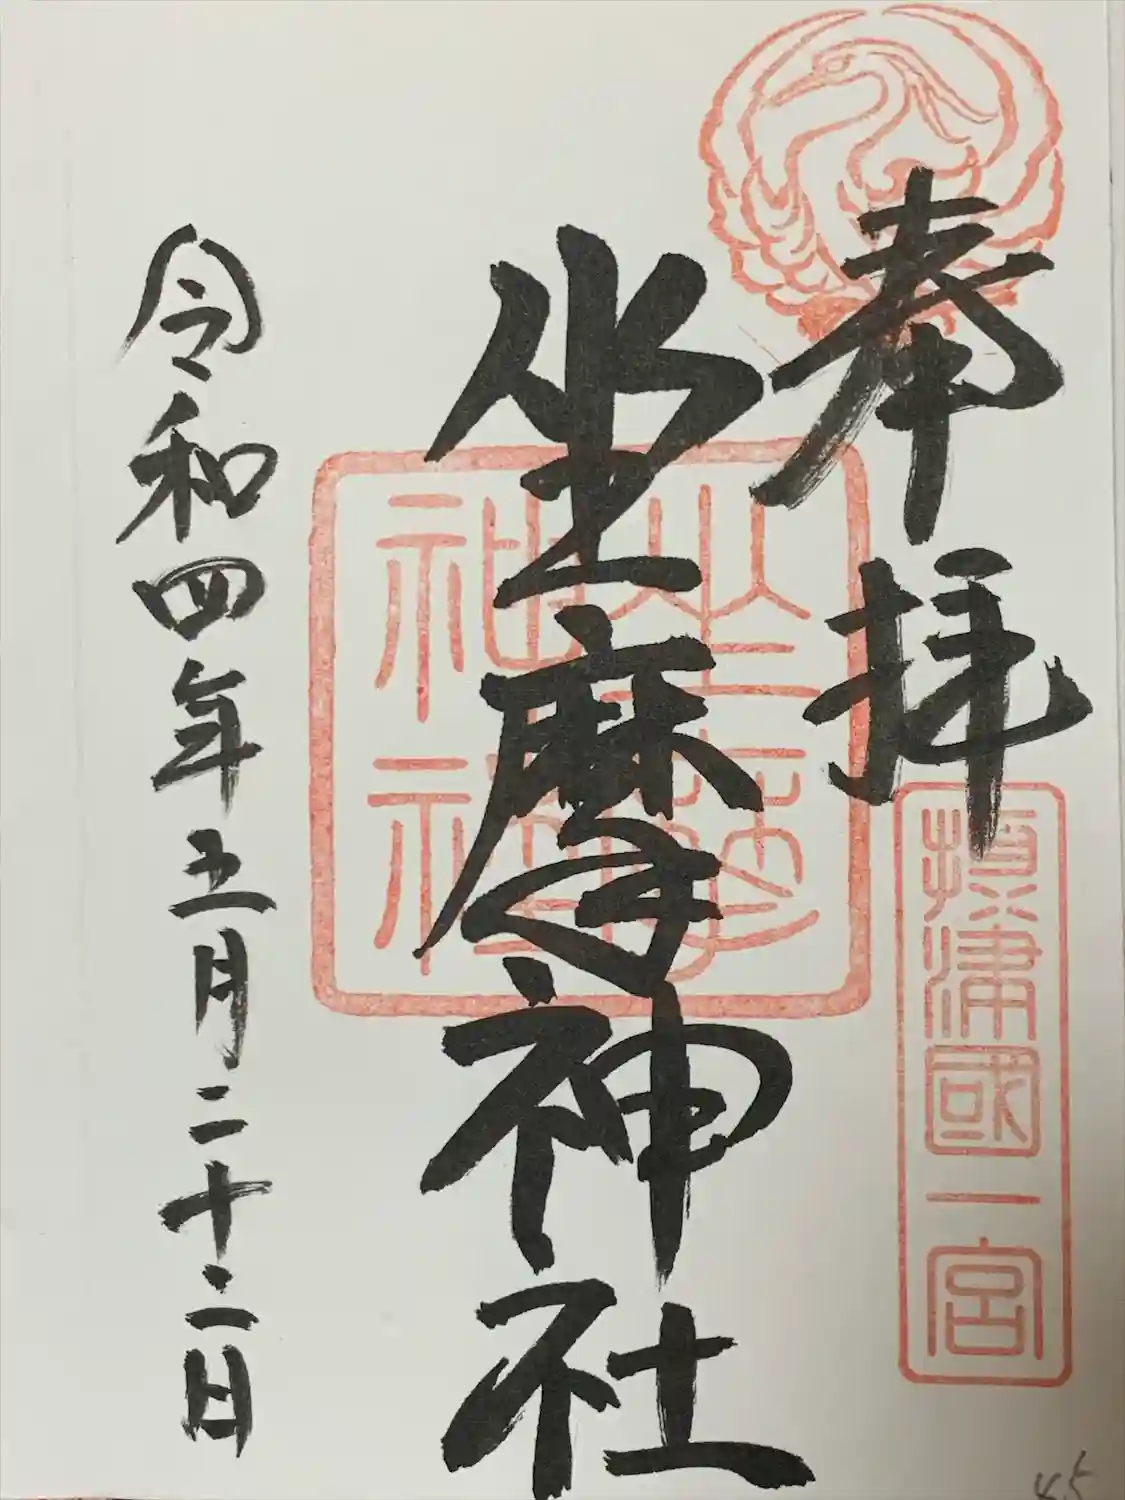 奉拝
攝津國一宮
坐摩神社
坐摩神社
令和四年五月二十二日
45